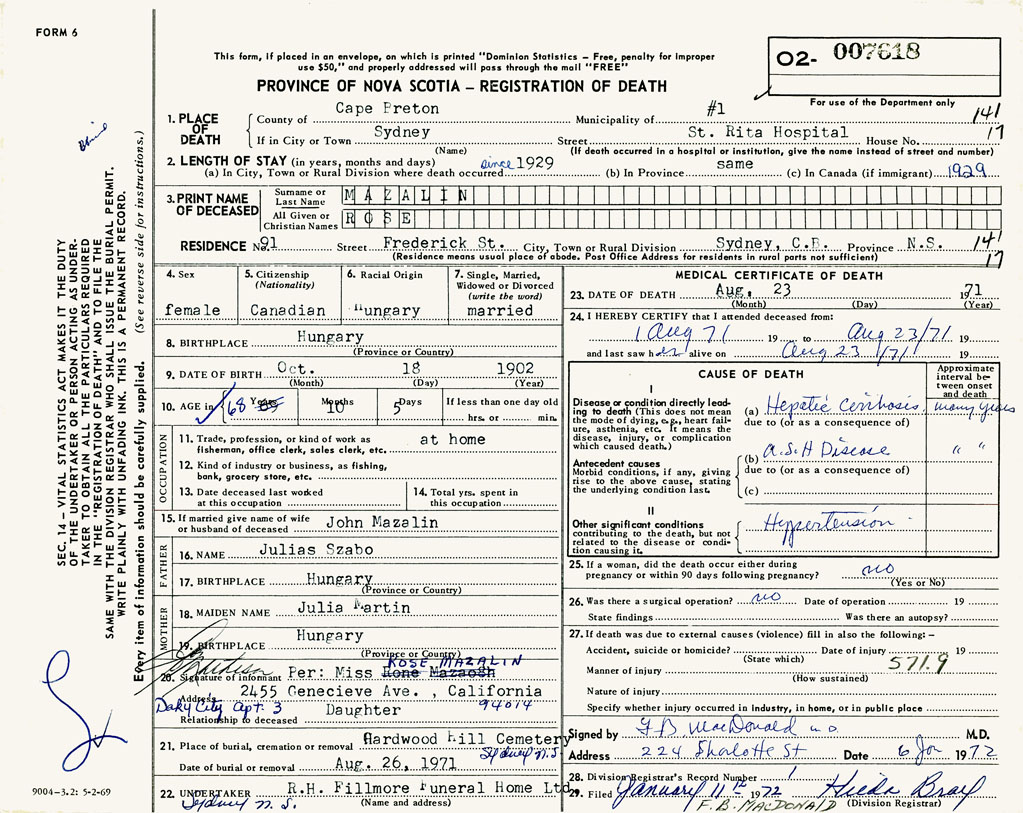 FORM 6
This form, if placed in an envelope, on which is printed "Dominion Statistics – Free, penalty for improper
use $50," and properly addressed will pass through the mail "FREE"
O2- 007618
PROVINCE OF NOVA SCOTIA – REGISTRATION OF DEATH
For use of the Department only
1. PLACE OF DEATH
County of Cape Breton Municipality of #1 141
If in City or Town Sydney Street St. Rita Hospital House No. 17
(Name) (If death occurred in a hospital or institution, give the name instead of street and number)
2. LENGTH OF STAY (in years, months and days)
(a) In City, Town or Rural Division where death occurred since 1929 (b) In Province same (c) In Canada (if immigrant) 1929
3. PRINT NAME OF DECEASED
Surname or Last Name MAZALIN
All Given or Christian Names ROSE
RESIDENCE No. 91 Street Frederick St. City, Town or Rural Division Sydney, C.B. Province N.S. 141
(Residence means usual place of abode. Post Office Address for residents in rural parts not sufficient) 17
4. Sex female
5. Citizenship (Nationality) Canadian
6. Racial Origin Hungary
7. Single, Married, Widowed or Divorced (write the word) married
8. BIRTHPLACE Hungary
(Province or Country)
9. DATE OF BIRTH Oct. 18 1902
(Month) (Day) (Year)
10. AGE in 68 Years Months 10 5 Days If less than one day old
hrs. or min.
OCCUPATION
11. Trade, profession, or kind of work as at home
fisherman, office clerk, sales clerk, etc.
12. Kind of industry or business, as fishing,
bank, grocery store, etc.
13. Date deceased last worked
at this occupation
14. Total yrs. spent in
this occupation
15. If married give name of wife
or husband of deceased John Mazalin
FATHER
16. NAME Julias Szabo
17. BIRTHPLACE Hungary
(Province or Country)
MOTHER
18. MAIDEN NAME Julia Martin
19. BIRTHPLACE Hungary
(Province or Country)
ROSE MAZALIN
20. Signature of informant Per: Miss Rone Mazaosh
Address 2455 Genecieve Ave. , California
Daly City Apt. 3 94014
Relationship to deceased Daughter
21. Place of burial, cremation or removal Hardwood Hill Cemetery
Sydney N.S.
Date of burial or removal Aug. 26, 1971
22. UNDERTAKER R.H. Fillmore Funeral Home Ltd.
Sydney N.S. (Name and address)
MEDICAL CERTIFICATE OF DEATH
23. DATE OF DEATH Aug. 23 1971
(Month) (Day) (Year)
24. I HEREBY CERTIFY that I attended deceased from:
1 Aug 71 19 to Aug 23/71 19
and last saw her alive on Aug 23 /71 19
CAUSE OF DEATH
Approximate interval between onset and death
I
Disease or condition directly leading to death (This does not mean the mode of dying, e.g., heart failure, asthenia, etc. It means the disease, injury, or complication which caused death.)
(a) Hepatic Cirrhosis many years
due to (or as a consequence of)
Antecedent causes
Morbid conditions, if any, giving rise to the above cause, stating the underlying condition last.
(b) A.S.H Disease " "
due to (or as a consequence of)
(c)
II
Other significant conditions
contributing to the death, but not related to the disease or condition causing it.
Hypertension
25. If a woman, did the death occur either during
pregnancy or within 90 days following pregnancy? no
(Yes or No)
26. Was there a surgical operation? no Date of operation 19
State findings Was there an autopsy?
27. If death was due to external causes (violence) fill in also the following: –
Accident, suicide or homicide? Date of injury 19
(State which) 571.9
Manner of injury
(How sustained)
Nature of injury
Specify whether injury occurred in industry, in home, or in public place
Signed by F B MacDonald M.D. M.D.
Address 224 Sharlotte St Date 6 Jan 1972
28. Division Registrar's Record Number 1
29. Filed January 11th 1972 Hilda Bray
F.B. MACDONALD (Division Registrar)
SEC. 14 – VITAL STATISTICS ACT MAKES IT THE DUTY
OF THE UNDERTAKER OR PERSON ACTING AS UNDER-
TAKER TO OBTAIN ALL THE PARTICULARS REQUIRED
IN THE "REGISTRATION OF DEATH" AND TO FILE THE
SAME WITH THE DIVISION REGISTRAR WHO SHALL ISSUE THE BURIAL PERMIT.
WRITE PLAINLY WITH UNFADING INK. THIS IS A PERMANENT RECORD.
Every item of information should be carefully supplied. (See reverse side for instructions.)
9004-3.2: 5-2-69